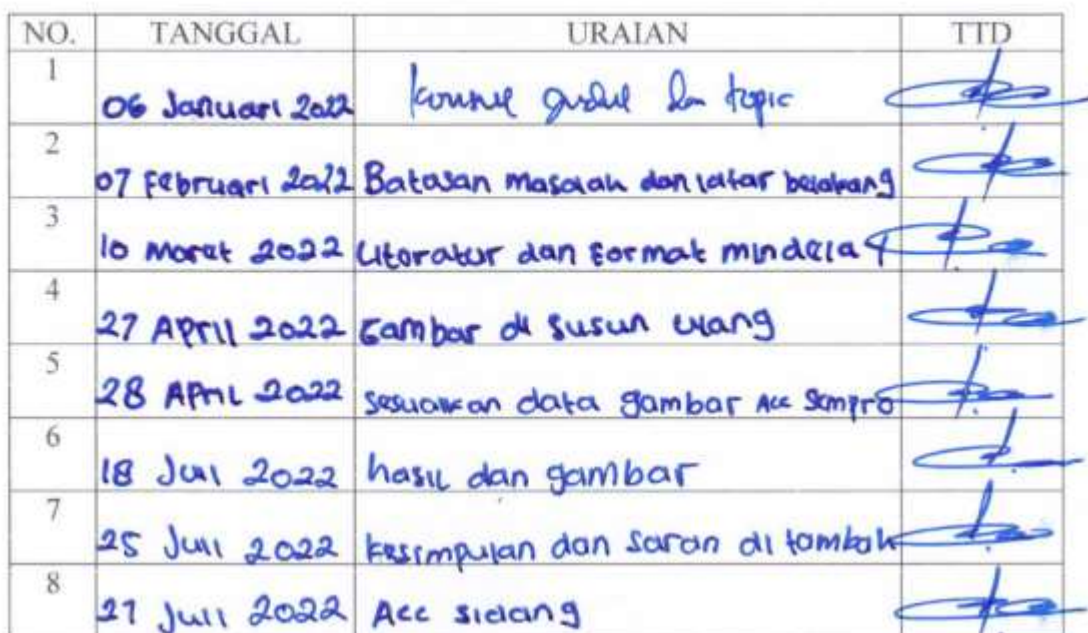 NO. TANGGAL URAIAN TTD
1 06 Januari 2022 konsul judul dan topic
2 07 Februari 2022 Batasan masalah dan latar belakang
3 10 Maret 2022 Literatur dan Format
4 27 April 2022 Gambar di susun ulang
5 28 April 2022 sesuaikan data gambar Acc Sempro
6 18 Juli 2022 hasil dan gambar
7 25 Juli 2022 kesimpulan dan saran di tambah
8 27 Juli 2022 Acc sidang